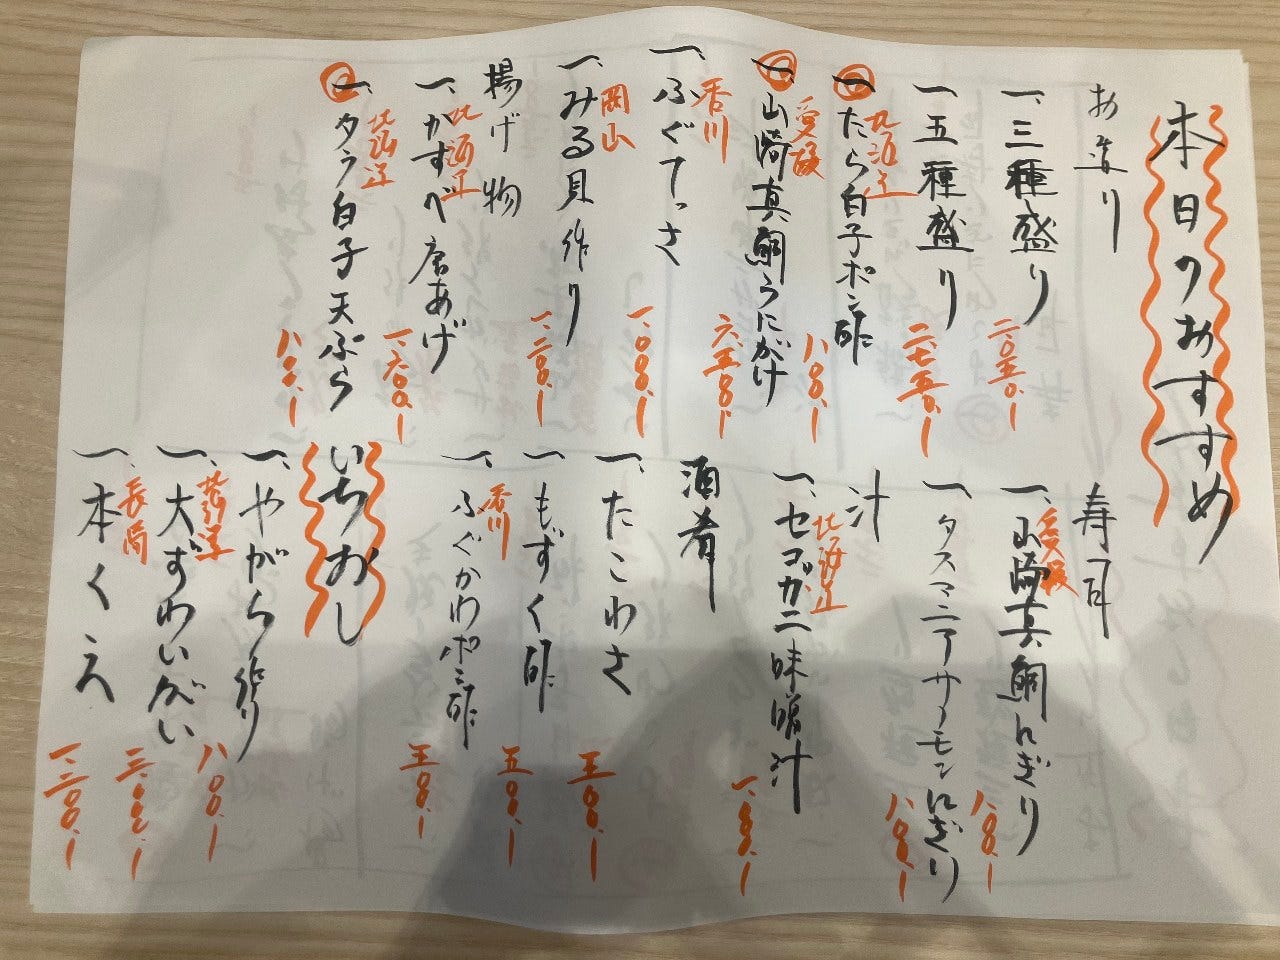 本日のおすすめ
お造り
一、三種盛り 二、〇五〇、ー
一、五種盛り 二、七五〇、ー
一、北海道 たら白子ポン酢
一、愛媛 山崎真鯛うにがけ 八〇〇、ー
一、香川 ふぐてっさ 六、五〇〇、ー
一、岡山 みる貝作り 一、〇〇〇、ー
揚げ物 一、二〇〇、ー
一、北海道 かすべ唐あげ 一、六〇〇、ー
一、北海道 タラ白子天ぷら 八〇〇、ー
寿司
一、愛媛 山崎真鯛にぎり 八〇〇、ー
一、タスマニアサーモンにぎり 八〇〇、ー
汁
一、北海道 セコガニ味噌汁
酒肴
一、たこわさ 五〇〇、ー
一、もずく酢 五〇〇、ー
一、香川 ふぐかわポン酢 五〇〇、ー
いちおし
一、やがら作り 八〇〇、ー
一、北海道 大ずわいがい 三、〇〇〇、ー
一、長崎 本くえ 一、二〇〇、ー